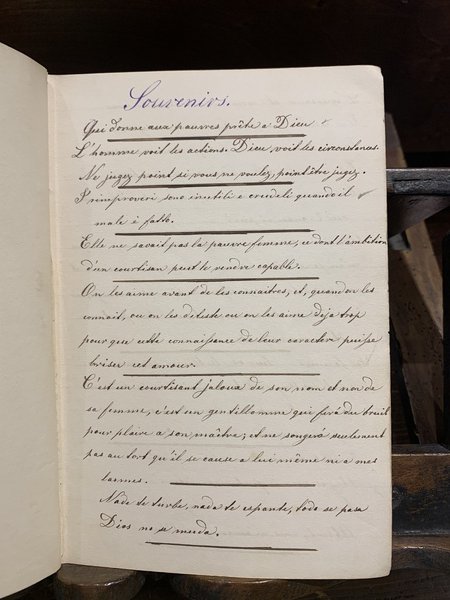 Souvenirs.
Qui donne aux pauvres prête a Dieu
L'homme voit les actions. Dieu voit les circonstances.
Ne jugez point si vous ne voulez, point être jugez.
I rimproveri sono inutili e crudeli quando il
male è fatto.
Elle ne savait pas la pauvre femme, ce dont l'ambition
d'un courtisan peut le rendre capable.
On les aime avant de les connaitres, et, quand on les
connait, ou on les déteste ou on les aime deja trop
pour que cette connaissance de leur caractere puisse
briser cet amour.
C'est un courtisant jaloux de son nom et non de
sa femme, c'est un gentillomme qui fera du
pour plaire a son maître; et ne songera seulement
pas au tort qu'il se cause a lui même ni a mes
larmes.
Nade te turbe, nada te espante, todo se pasa
Dios no se muda.